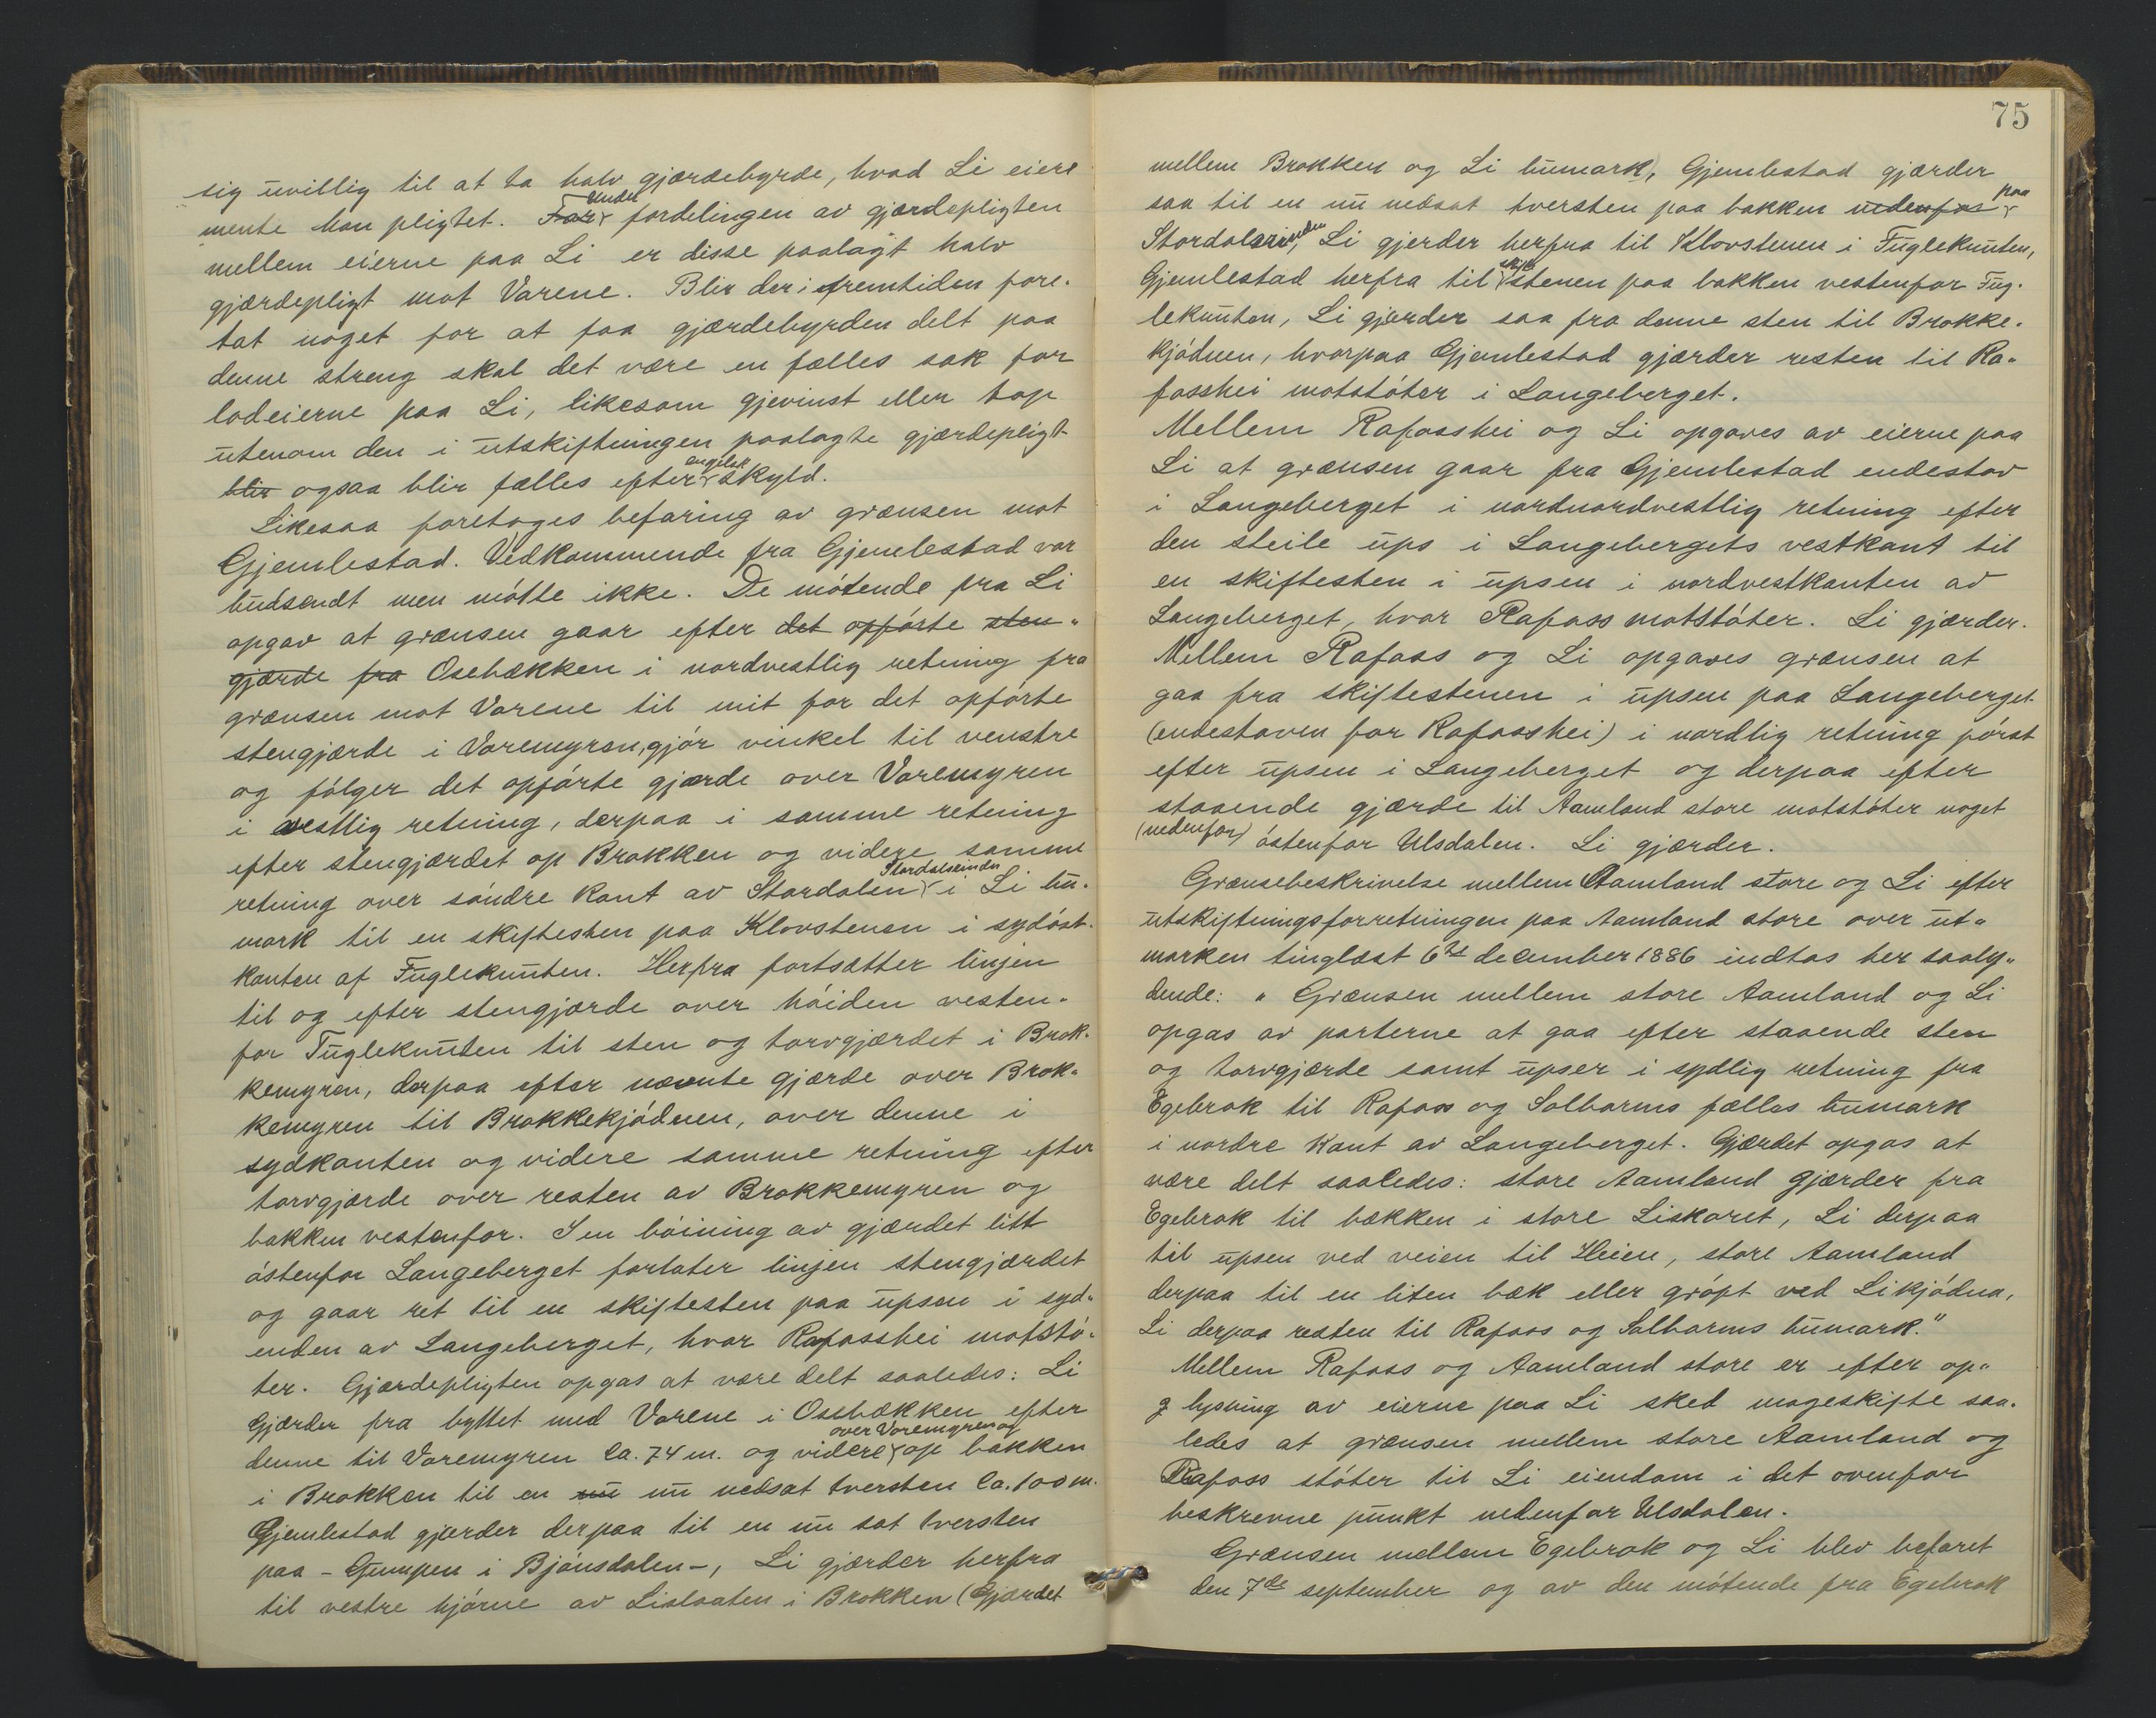 sig uvillig til at ta halv gjærdebyrde, hvad Li eiere
mente han pligtet. For Under fordelingen av gjærdepligten
mellem eierne paa Li er disse paalagt halv
gjærdepligt mot Varene. Blir der i fremtiden fore-
tat noget for at faa gjærdebyrden delt paa
denne streng skal det være en fælles sak for
lodeierne paa Li, likesom gjevinst eller tap
utenom den i utskiftningen paalagte gjærdepligt
blir ogsaa blir fælles efter engelsk skyld.
Likesaa foretages befaring av grænsen mot
Gjemlestad. Vedkommende fra Gjemlestad var
budsendt men møtte ikke. De møtende fra Li
opgav at grænsen gaar efter det opførte sten-
gjærde fra Osebækken i nordvestlig retning fra
grænsen mot Varene til mit for det opførte
stengjærde i Varemyren, gjør vinkel til venstre
og følger det opførte gjærde over Varemyren
i vestlig retning, derpaa i samme retning
efter stengjærdet op Brokken og videre samme
retning over søndre kant av Stordalen Stordalseinden i Li bu-
mark til en skiftesten paa Klovstenen i sydøst-
kanten af Fugleknuten. Herfra fortsætter linjen
til og efter stengjærde over høiden vesten-
for Fugleknuten til sten og torvgjærdet i Brok-
kemyren, derpaa efter nævnte gjærde over Brok-
kemyren til Brokkekjødnen, over denne i
sydkanten og videre samme retning efter
torvgjærde over resten av Brokkemyren og
bakken vestenfor. I en bøining av gjærdet litt
østenfor Langeberget forlater linjen stengjærdet
og gaar ret til en skiftesten paa upsen i syd-
enden av Langeberget, hvor Rafosshei motstø-
ter. Gjærdepligten opgas at være delt saaledes: Li
gjærder fra byttet med Varene i Osebækken efter
denne til Varemyren ca. 74 m. og videre over Varemyren og op bakken
i Brokken til en nu nu nedsat tversten ca. 100 m.
Gjemlestad gjærder derpaa til en nu sat tversten
paa - Gumpen i Bjønsdalen -, Li gjærder herfra
til vestre hjørne av Lislaaten i Brokken (Gjærdet
75
mellem Brokken og Li bumark), Gjemlestad gjærder
saa til en nu nedsat tversten paa bakken nedenfor paa
Stordalseinden, Li gjerder herfra til Klovstenen i Fugleknuten,
Gjemlestad herfra til skiftestenen paa bakken vestenfor Fug-
leknuten, Li gjærder saa fra denne sten til Brokke-
kjødnen, hvorpaa Gjemlestad gjærder resten til Ra-
fosshei motstøter i Langeberget.
Mellem Rafosshei og Li opgaves av eierne paa
Li at grænsen gaar fra Gjemlestad endestav
i Langeberget i nordnordvestlig retning efter
den steile ups i Langebergets vestkant til
en skiftesten i upsen i nordvestkanten av
Langeberget, hvor Rafoss motstøter. Li gjærder.
Mellem Rafoss og Li opgaves grænsen at
gaa fra skiftestenen i upsen paa Langeberget
(endestaven for Rafosshei) i nordlig retning først
efter upsen i Langeberget og derpaa efter
staaende gjærde til Aamland store motstøter noget
(nedenfor) østenfor Ulsdalen. Li gjærder.
Grænsebeskrivelse mellem Aamland store og Li efter
utskiftningsforretningen paa Aamland store over ut-
marken tinglæst 6te december 1886 indtas her saaly-
dende: "Grænsen mellem store Aamland og Li
opgas av parterne at gaa efter staaende sten
og torvgjærde samt upser i sydlig retning fra
Egebrok til Rafoss og Salbarms fælles bumark
i nordre kant av Langeberget. Gjærdet opgas at
være delt saaledes: store Aamland gjærder fra
Egebrok til bækken i store Liskaret, Li derpaa
til upsen ved veien til Heien, store Aamland
derpaa til en liten bæk eller grøpt ved Likjødna,
Li derpaa resten til Rafoss og Salbarms bumark."
Mellem Rafoss og Aamland store er efter op-
lysning av eierne paa Li sked mageskifte saa-
ledes at grænsen mellem store Aamland og
Rafoss støter til Li eiendom i det ovenfor
beskrevne punkt nedenfor Ulsdalen.
Grænsen mellem Egebrok og Li blev befaret
den 7de september og av den møtende fra Egebrok